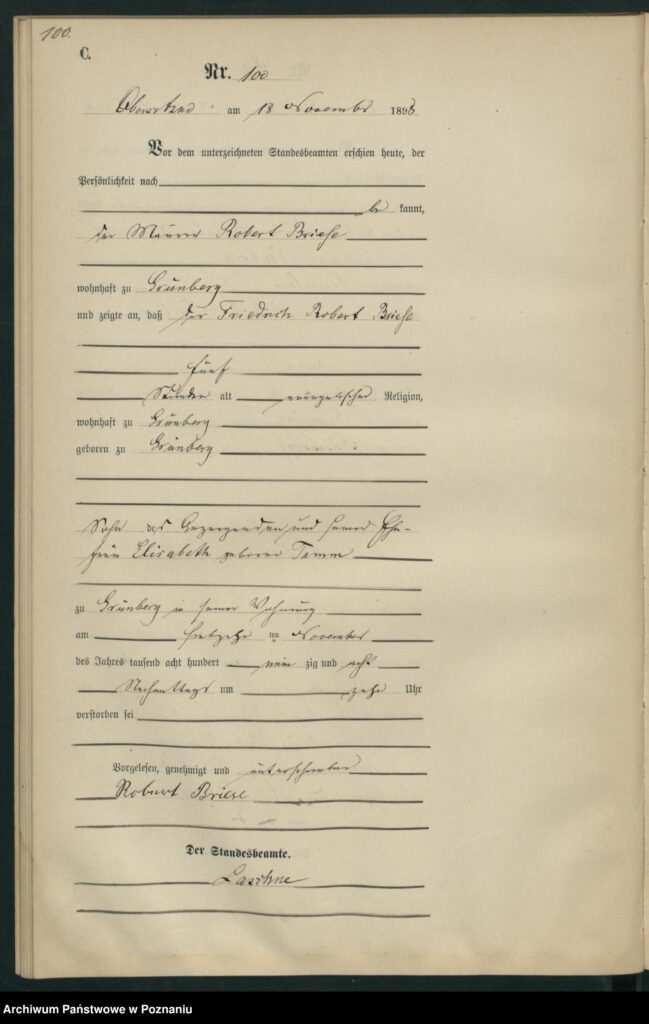 100.
C.
Nr. 100
Obersitzko am 18 November 1898
Vor dem unterzeichneten Standesbeamten erschien heute, der
Persönlichkeit nach
be kannt,
der Maurer Robert Briese
wohnhaft zu Grünberg
und zeigte an, daß der Friedrich Robert Briese
fünf
Stunden alt evangelischer Religion,
wohnhaft zu Grünberg
geboren zu Grünberg
Sohn des Anzeigenden und seiner Ehe-
frau Elisabeth geborene Timm
zu Grünberg in seiner Wohnung
am siebzehn ten November
des Jahres tausend acht hundert neun zig und acht
Nachmittags um zehn Uhr
verstorben sei
Vorgelesen, genehmigt und unterschrieben
Robert Briese
Der Standesbeamte.
Archiwum Państwowe w Poznaniu